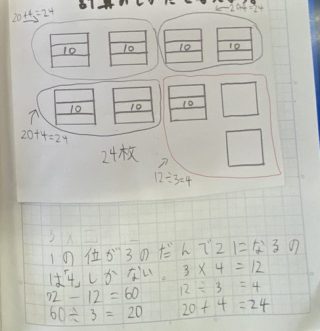 20+4=24
20+4=24
10 10 10 10
10 10 10
20+4=24
24枚
12÷3=4
1の位が3のだんで2になるの
は「4」しかない。 3×4=12
72-12=60 12÷3=4
60÷3=20 20+4=24